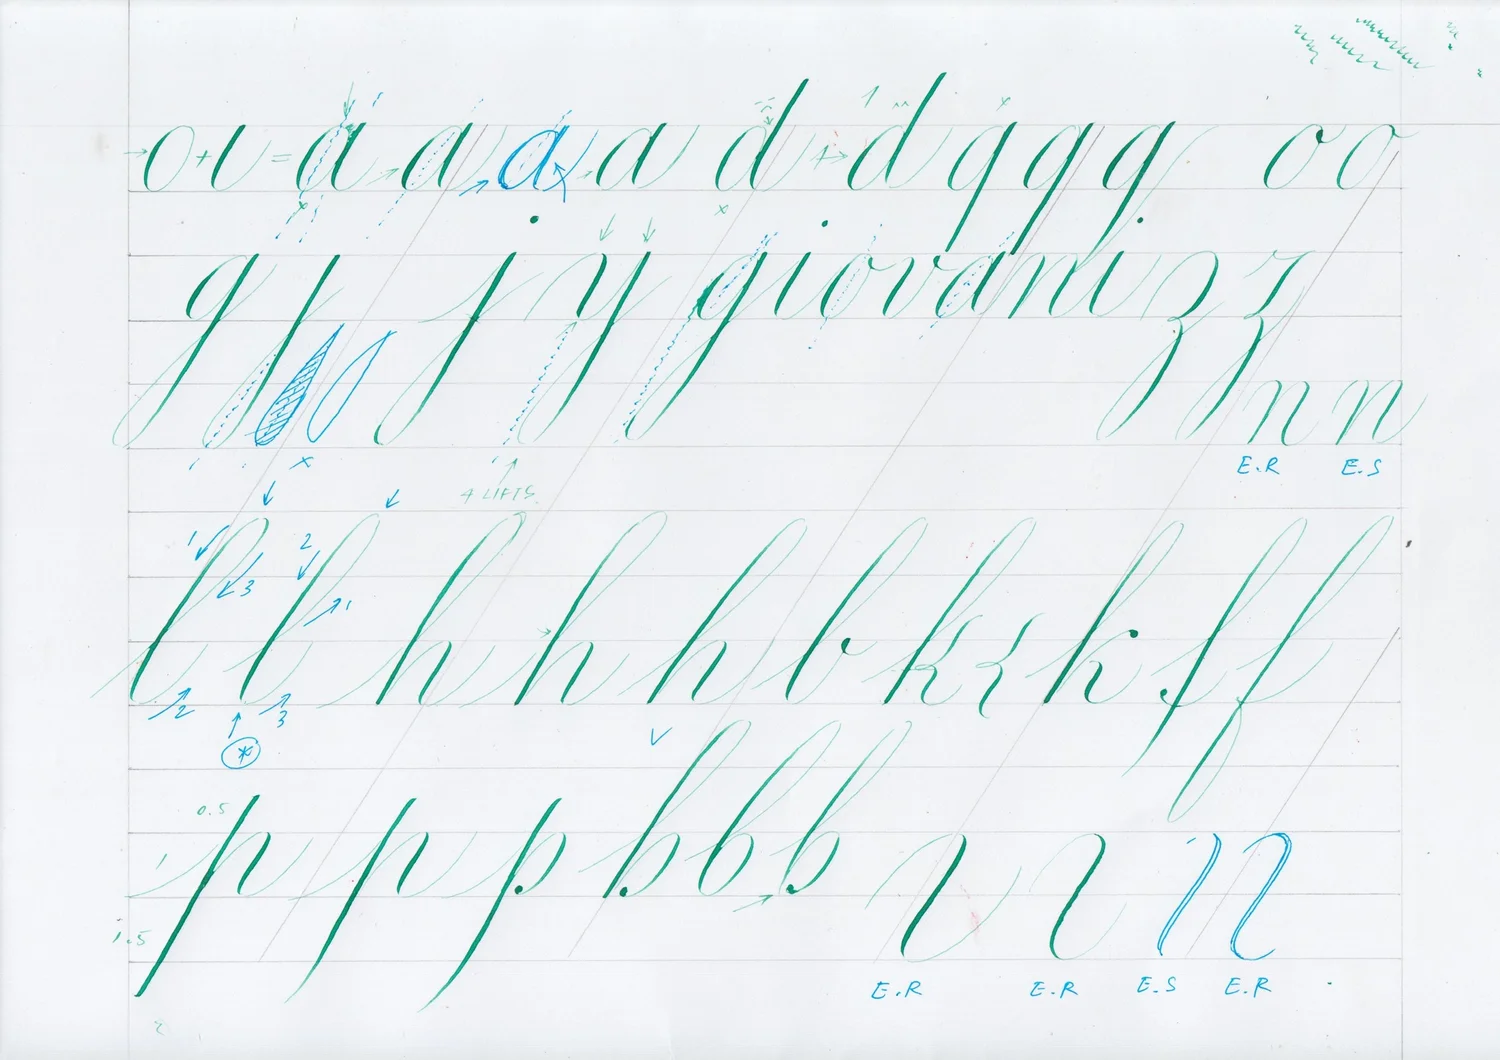 o + ι = a a a a d + d q q q o o
g j j y giovanizz
n n
E.R E.S
4 LIFTS
1 3 2 1
l l h h h b k k f f
2 3
*
0.5
p p p b b b
1
1.5
E.R E.R E.S E.R